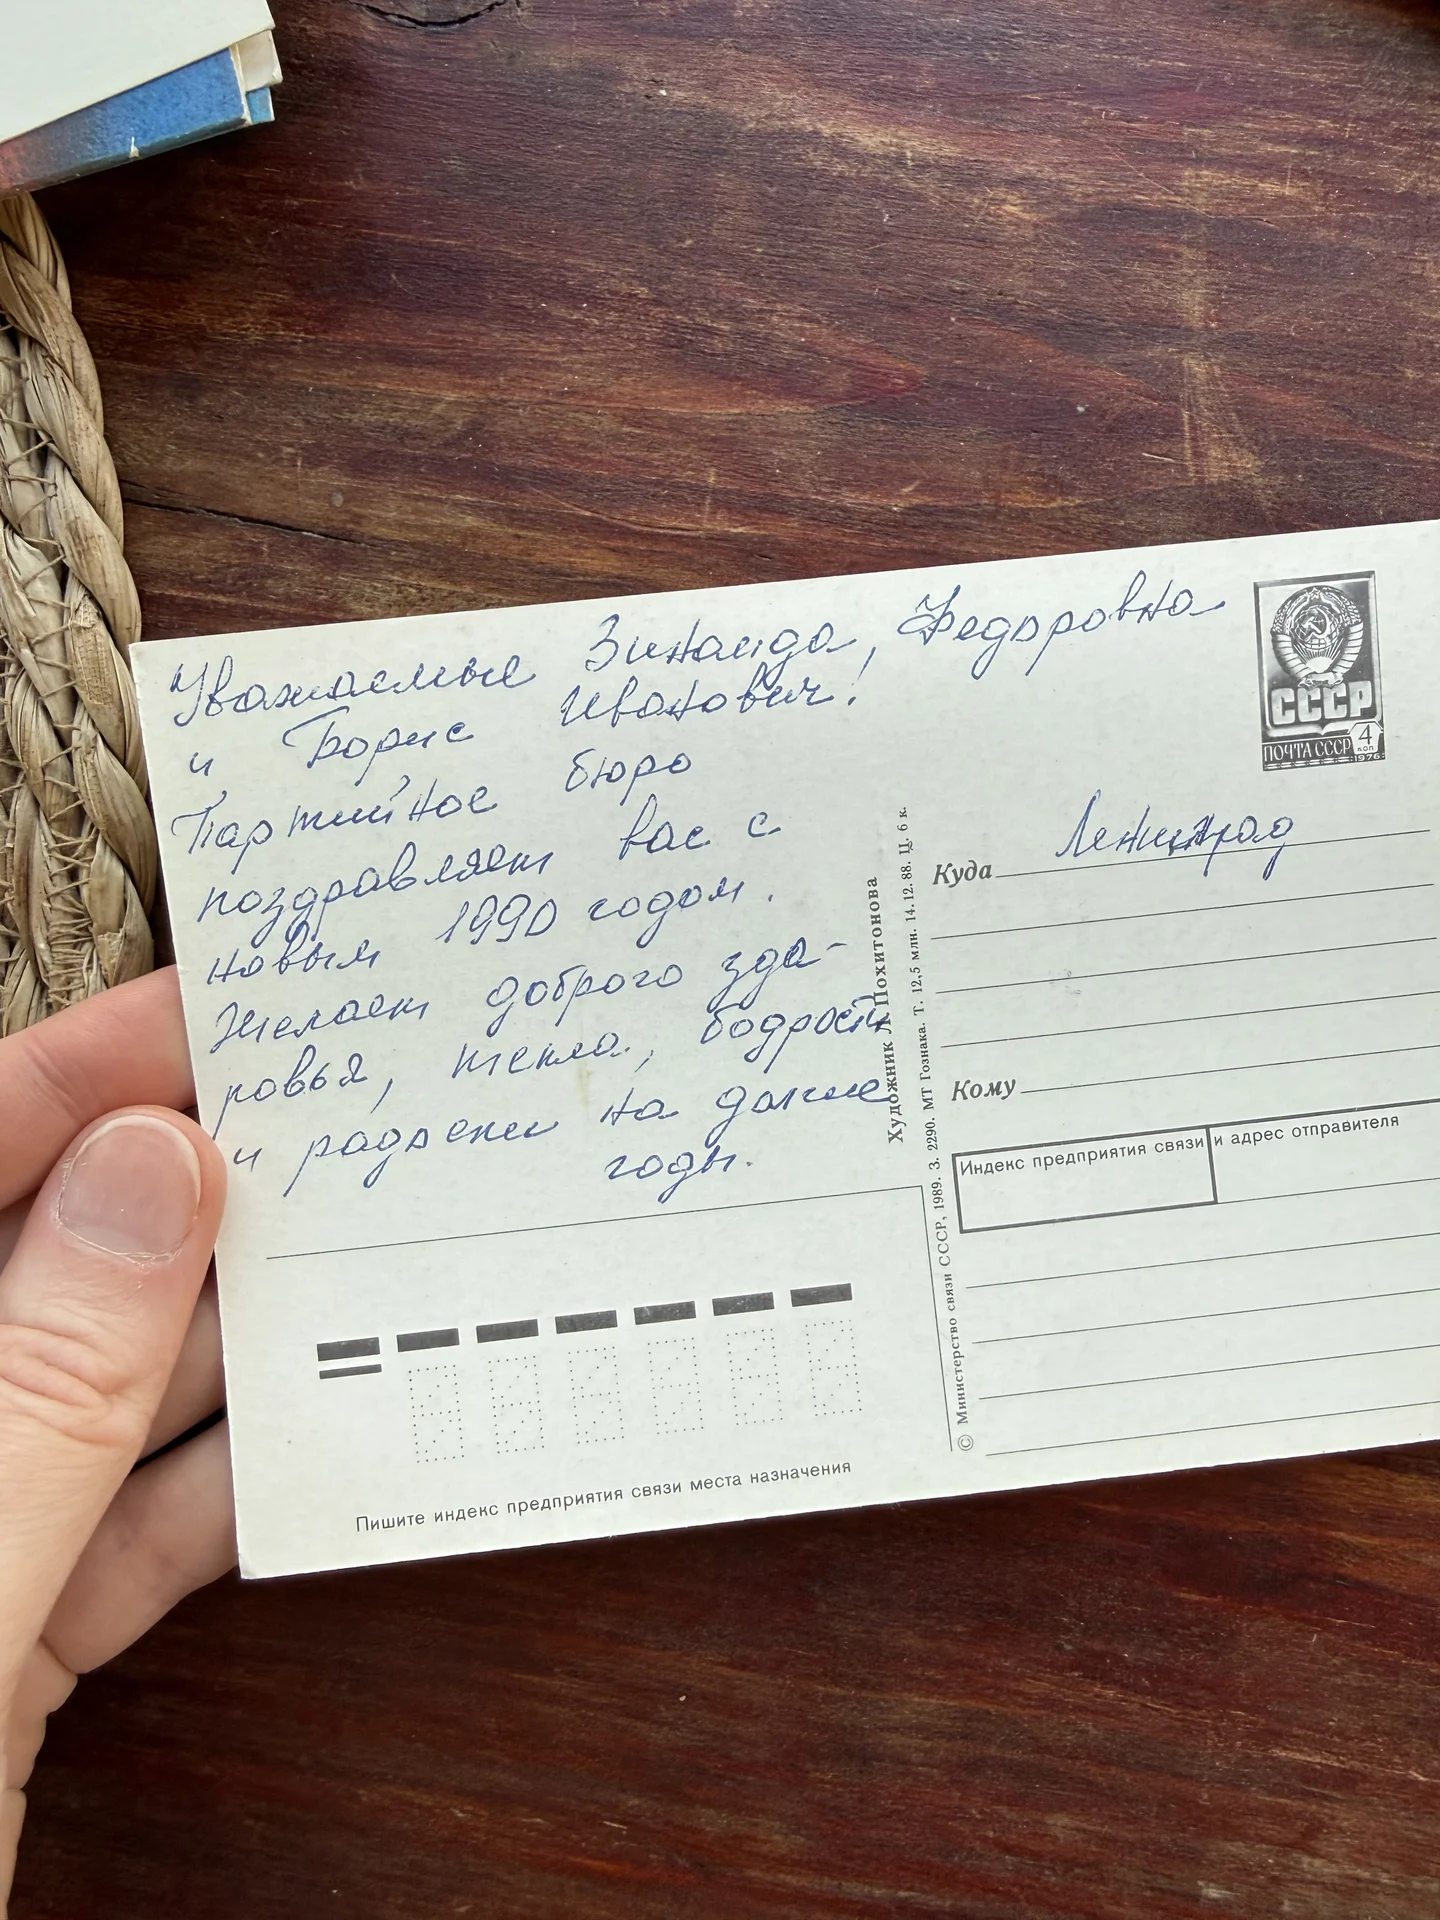 Уважаемые Зинаида, Федоровна
и Борис Иванович!
Партийное бюро
поздравляет вас с
новым 1990 годом.
Желаем доброго здо-
ровья, тепла, бодрости
и радости на долгие
годы.
СССР
ПОЧТА СССР 4 коп
1976
Куда Ленинград
Кому
Индекс предприятия связи и адрес отправителя
Художник Л. Похитонова
© Министерство связи СССР, 1989. З. 2290. МТ Гознака. Т. 12,5 млн. 14.12.88. Ц. 6 к.
Пишите индекс предприятия связи места назначения